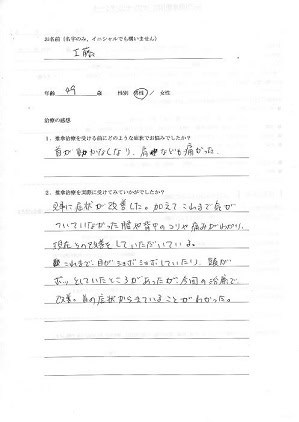 お名前（名字のみ、イニシャルでも構いません）
工藤
年齢 49 歳 性別 男性 / 女性
治療の感想
1、推拿治療を受ける前にどのような症状でお悩みでしたか？
首が動かなくなり、肩なども痛かった
2、推拿治療を実際に受けてみていかがでしたか？
見事に症状が改善した。加えてこれまで気が
ついていなかった腰や背中のコリや痛みがわかり、
現在その改善をしていただいている。
これまで、目がショボショボしていたり、頭が
ボッとしていたところがあったが、今回の治療で、
改善。首の症状からきていることがわかった。